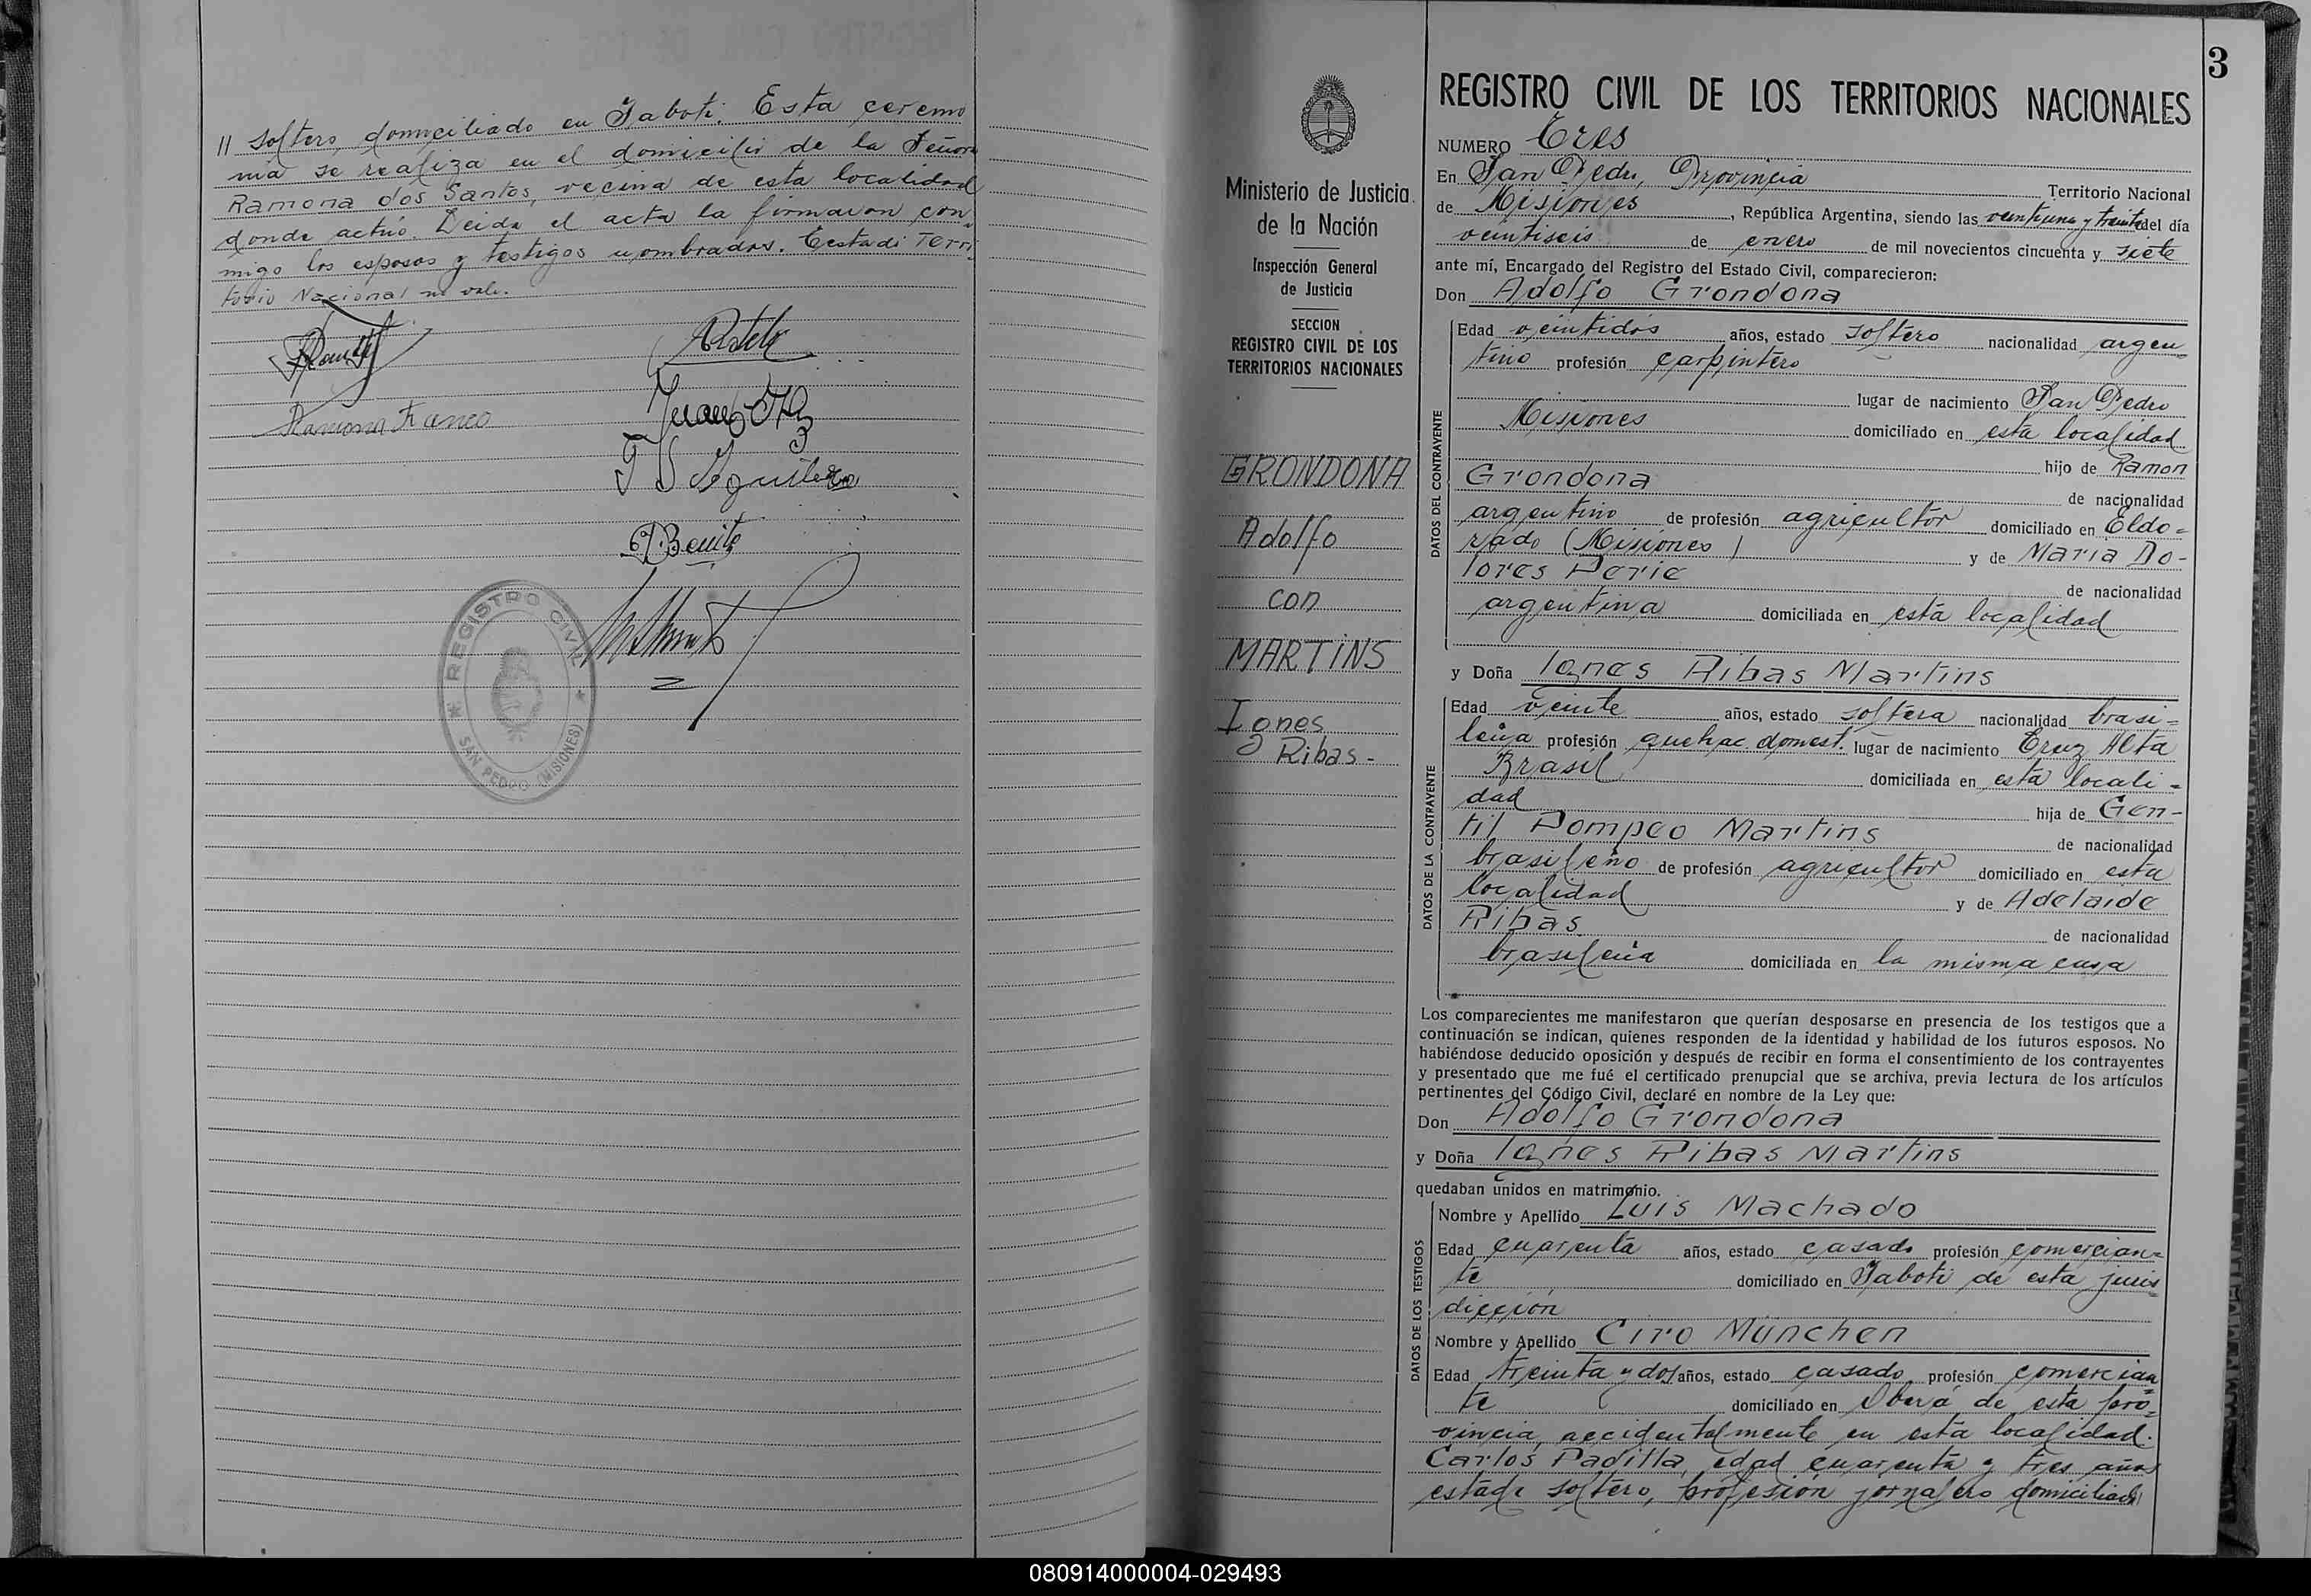 // soltero, domiciliado en Taboti. Esta ceremo
nia se realiza en el domicilio de la Señora
Ramona dos Santos, vecina de esta localidad
donde actúo. Leida el acta la firmaron con
migo los esposos y testigos nombrados. Testado: Terri
torio Nacional no vale.
Ramona Franco
REGISTRO CIVIL
SAN PEDRO (MISIONES)
3
Ministerio de Justicia
de la Nación
Inspección General
de Justicia
SECCION
REGISTRO CIVIL DE LOS
TERRITORIOS NACIONALES
GRONDONA
Adolfo
con
MARTINS
Ignes
Ribas-
REGISTRO CIVIL DE LOS TERRITORIOS NACIONALES
NUMERO Tres
En San Pedro, Provincia Territorio Nacional
de Misiones, República Argentina, siendo las veintiuna y treinta del día
veintiseis de enero de mil novecientos cincuenta y siete
ante mí, Encargado del Registro del Estado Civil, comparecieron:
Don Adolfo Grondona
DATOS DEL CONTRAYENTE
Edad veintidos años, estado soltero nacionalidad argen
tino profesión carpintero
lugar de nacimiento San Pedro
Misiones domiciliado en esta localidad
hijo de Ramon
Grondona de nacionalidad
argentino de profesión agricultor domiciliado en Eldo=
rado (Misiones) y de Maria Do-
lores Perie de nacionalidad
argentina domiciliada en esta localidad
y Doña Ignes Ribas Martins
DATOS DE LA CONTRAYENTE
Edad veinte años, estado soltera nacionalidad brasi=
leña profesión quehac. domest. lugar de nacimiento Cruz Alta
Brasil domiciliada en esta locali=
dad hija de Gen-
til Pompeo Martins de nacionalidad
brasileño de profesión agricultor domiciliado en esta
localidad y de Adelaide
Ribas de nacionalidad
brasileña domiciliada en la misma casa
Los comparecientes me manifestaron que querían desposarse en presencia de los testigos que a
continuación se indican, quienes responden de la identidad y habilidad de los futuros esposos. No
habiéndose deducido oposición y después de recibir en forma el consentimiento de los contrayentes
y presentado que me fué el certificado prenupcial que se archiva, previa lectura de los artículos
pertinentes del Código Civil, declaré en nombre de la Ley que:
Don Adolfo Grondona
y Doña Ignes Ribas Martins
quedaban unidos en matrimonio.
DATOS DE LOS TESTIGOS
Nombre y Apellido Luis Machado
Edad cuarenta años, estado casado profesión comercian=
te domiciliado en Taboti de esta juris
dicción
Nombre y Apellido Ciro Munchen
Edad treinta y dos años, estado casado profesión comercian
te domiciliado en Oberá de esta pro=
vincia, accidentalmente en esta localidad.
Carlos Padilla, edad cuarenta y tres años
estado soltero, profesión jornalero domiciliado//
080914000004-029493